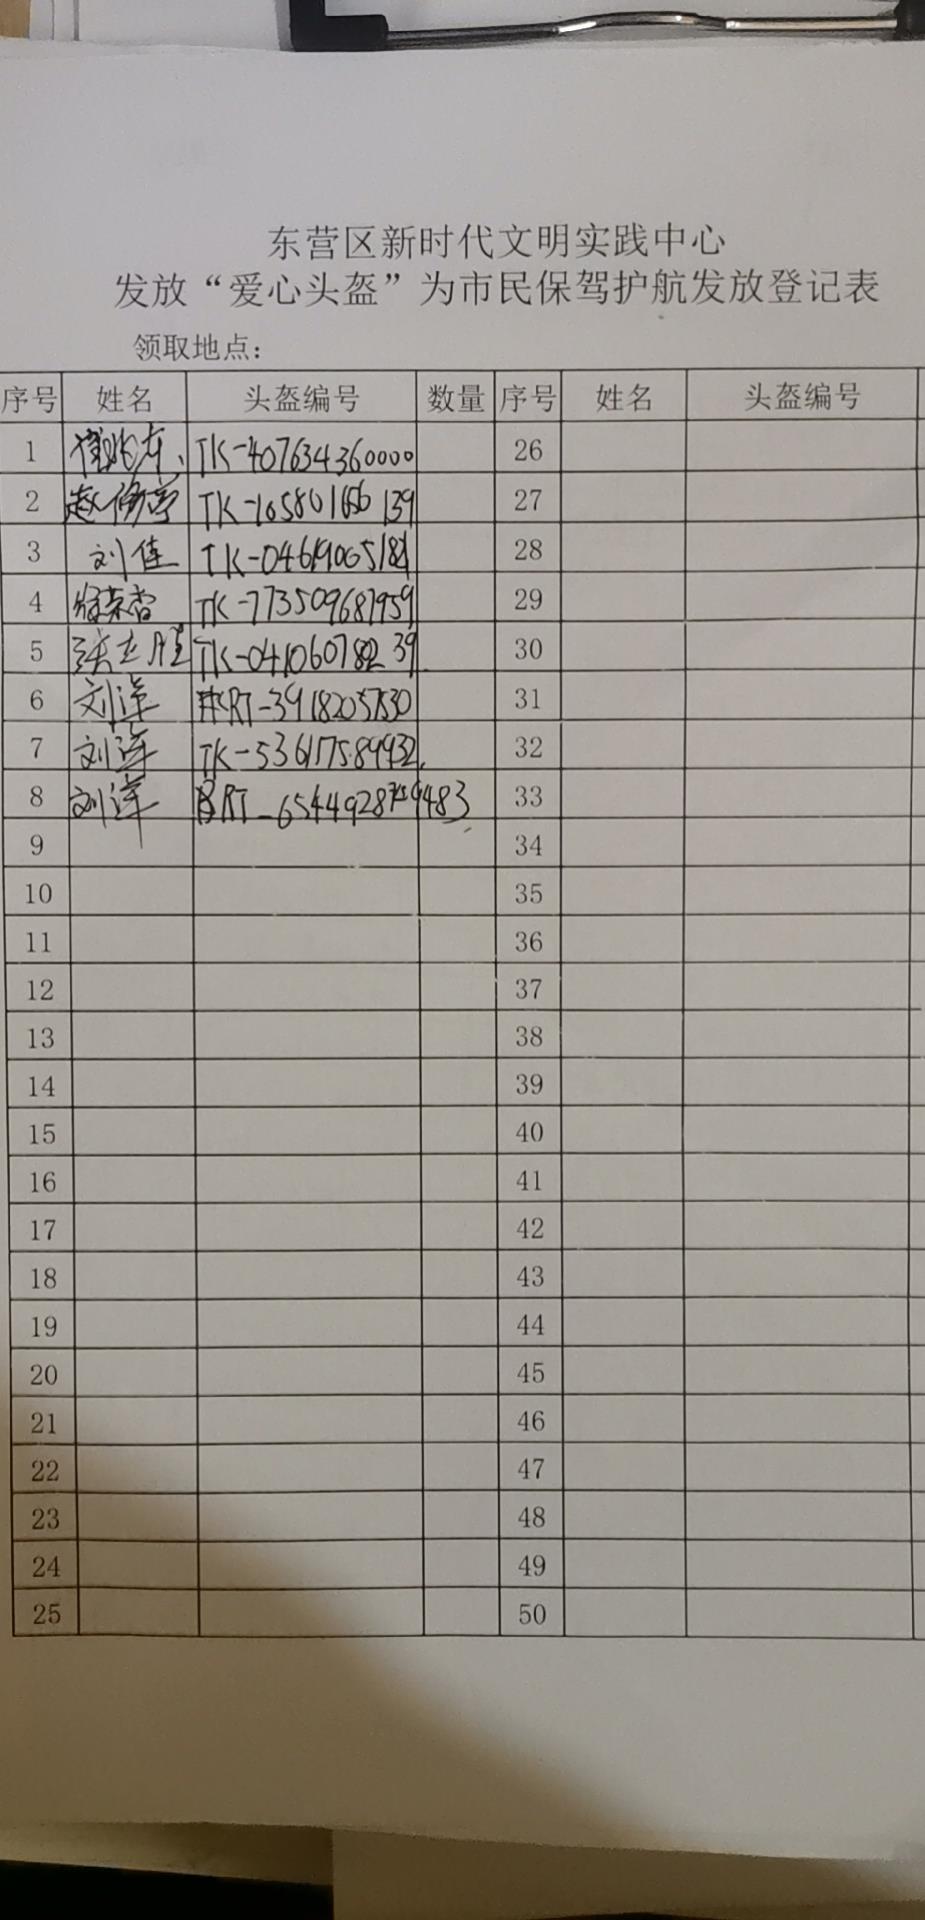 东营区新时代文明实践中心
发放“爱心头盔”为市民保驾护航发放登记表
领取地点：
序号 姓名 头盔编号 数量 序号 姓名 头盔编号
1 TK-407634360000 26
2 27
3 刘佳 28
4 TK-773509687959 29
5 30
6 刘洋 31
7 刘洋 TK-536177589932 32
8 刘洋 33
9 34
10 35
11 36
12 37
13 38
14 39
15 40
16 41
17 42
18 43
19 44
20 45
21 46
22 47
23 48
24 49
25 50